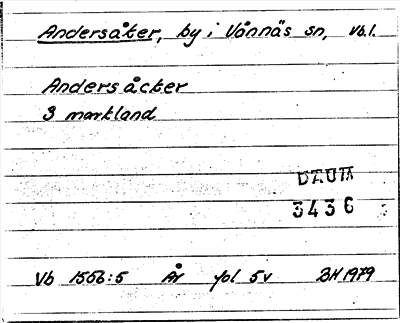 Andersåker, by i Vännäs sn, Vb.l.
Anders åcker
3 markland
DAUM
3436
Vb 1566:5 År fol 5v BH 1979